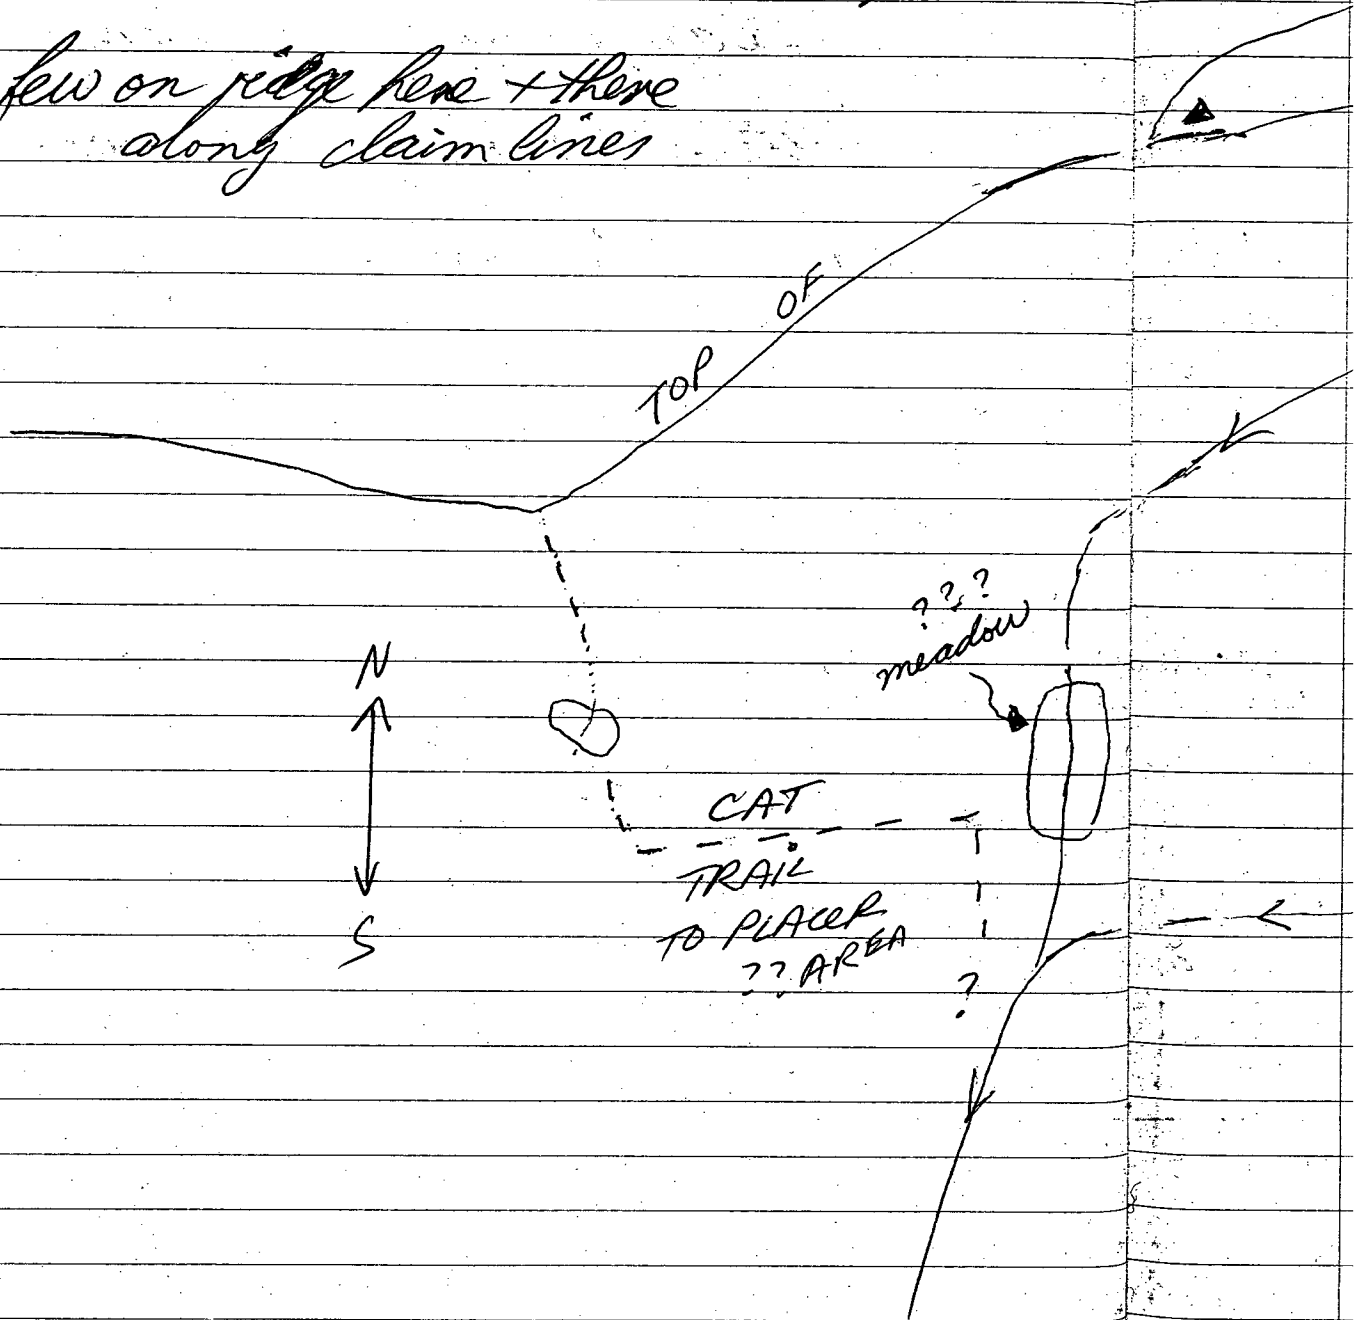 few on ridge here + there
along claim lines
TOP OF
? ? ?
meadow
N
CAT
TRAIL
TO PLACER
?? AREA
S
?